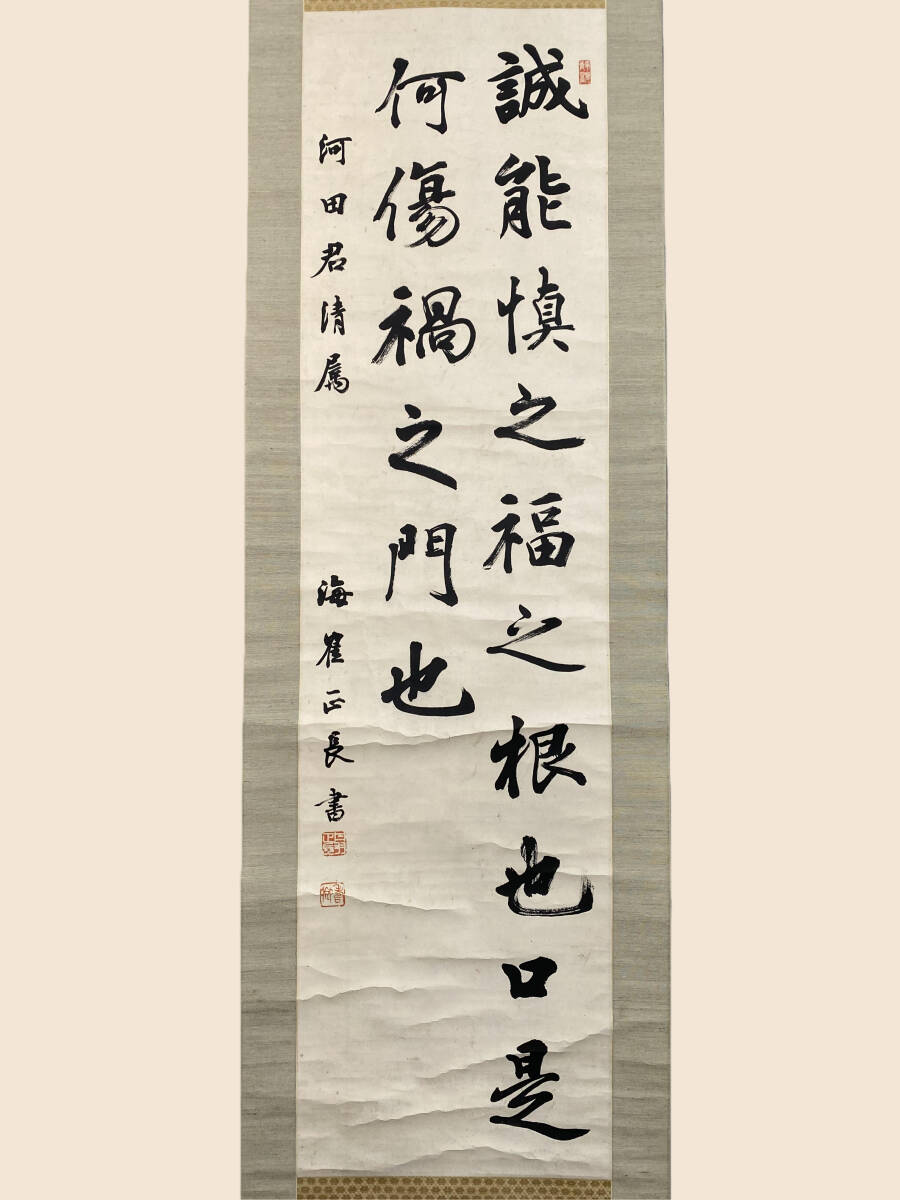 誠能慎之福之根也口是
何傷禍之門也
河田君清属
海崔正長書